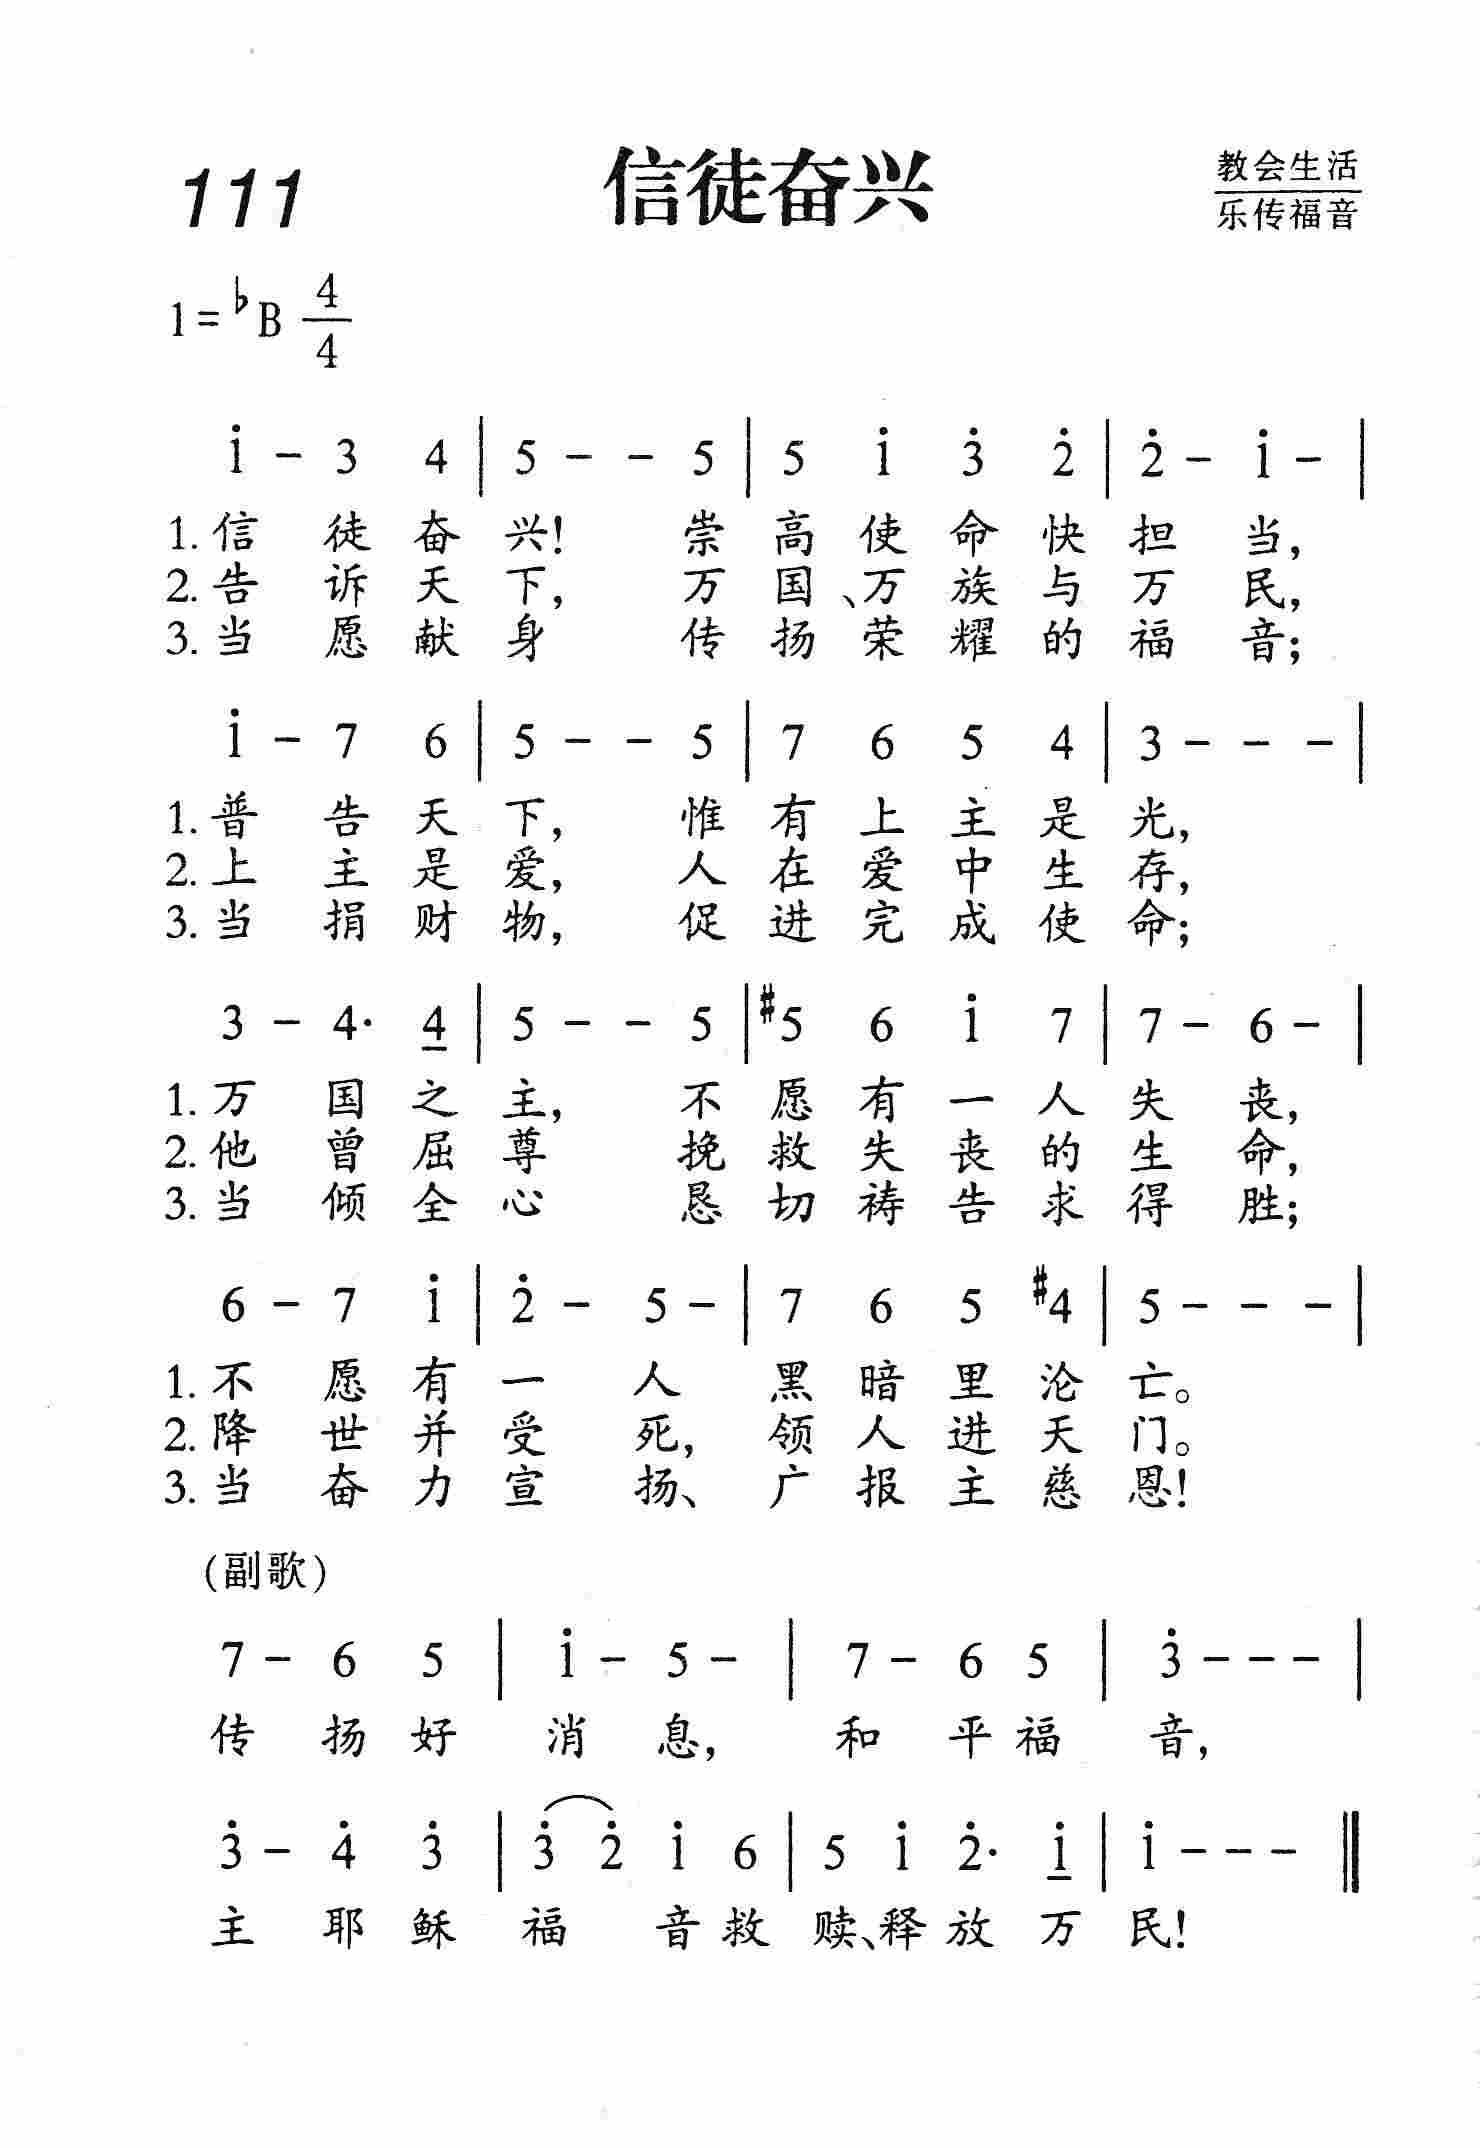 111
信徒奋兴
教会生活
乐传福音
1=♭B 4/4
i - 3 4 | 5 - - 5 | 5 i 3̇ 2̇ | 2̇ - i - |
1.信徒奋兴!崇高使命快担当,
2.告诉天下,万国、万族与万民,
3.当愿献身传扬荣耀的福音;
i - 7 6 | 5 - - 5 | 7 6 5 4 | 3 - - - |
1.普告天下,惟有上主是光,
2.上主是爱,人在爱中生存,
3.当捐财物,促进完成使命;
3 - 4· 4̲ | 5 - - 5 | #5 6 i 7 | 7 - 6 - |
1.万国之主,不愿有一人失丧,
2.他曾屈尊挽救失丧的生命,
3.当倾全心恳切祷告求得胜;
6 - 7 i | 2̇ - 5 - | 7 6 5 #4 | 5 - - - |
1.不愿有一人黑暗里沦亡。
2.降世并受死,领人进天门。
3.当奋力宣扬、广报主慈恩!
(副歌)
7 - 6 5 | i - 5 - | 7 - 6 5 | 3̇ - - - |
传扬好消息,和平福音,
3̇ - 4̇ 3̇ | 3̇ 2̇ i 6 | 5 i 2̇· i̲ | i - - - ‖
主耶稣福音救赎、释放万民!